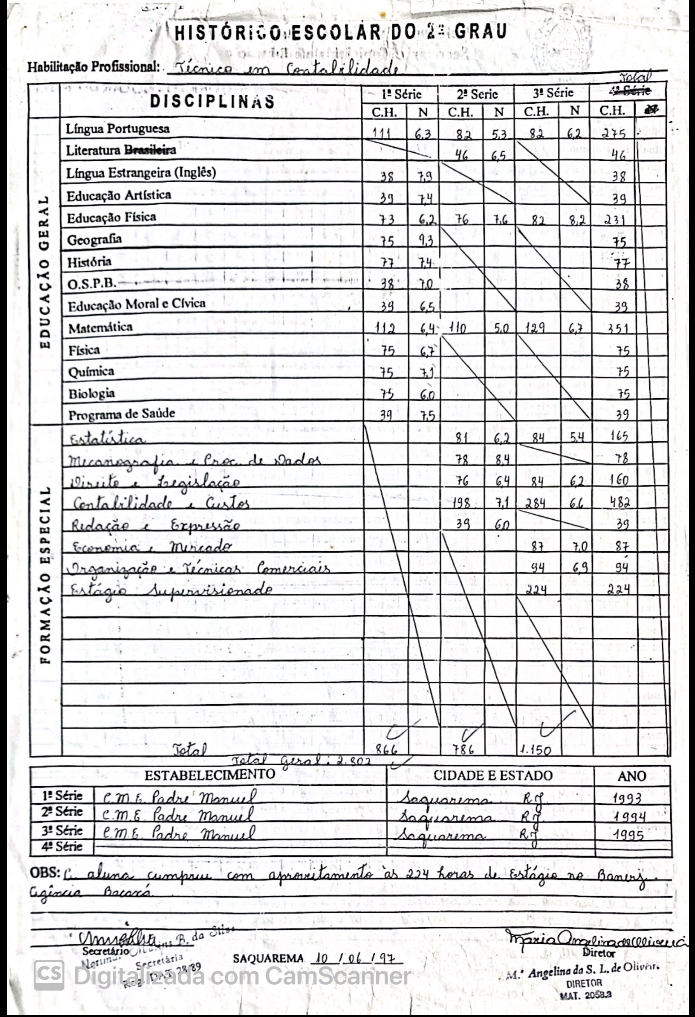 HISTÓRICO ESCOLAR DO 2º GRAU
Habilitação Profissional: Técnico em Contabilidade
DISCIPLINAS 1ª Série 2ª Serie 3ª Série 4ª Série Total
C.H. N C.H. N C.H. N C.H.
EDUCAÇÃO GERAL
Língua Portuguesa 111 6,3 82 5,3 82 6,2 275
Literatura Brasileira 46 6,5 46
Língua Estrangeira (Inglês) 38 7,9 38
Educação Artística 39 7,4 39
Educação Física 73 6,2 76 7,6 82 8,2 231
Geografia 75 9,3 75
História 77 7,4 77
O.S.P.B. 38 7,0 38
Educação Moral e Cívica 39 6,5 39
Matemática 112 6,4 110 5,0 129 6,7 351
Física 75 6,7 75
Química 75 7,1 75
Biologia 75 6,0 75
Programa de Saúde 39 7,5 39
FORMAÇÃO ESPECIAL
Estatística 81 6,2 84 5,4 165
Mecanografia e Proc. de Dados 78 8,4 78
Direito e Legislação 76 6,4 84 6,2 160
Contabilidade e Custos 198 7,1 284 6,6 482
Redação e Expressão 39 6,0 39
Economia e Mercado 87 7,0 87
Organização e Técnicas Comerciais 94 6,9 94
Estágio Supervisionado 224 224
Total 866 786 1.150
Total Geral: 2.802
ESTABELECIMENTO CIDADE E ESTADO ANO
1ª Série C.M.E. Padre Manuel Saquarema RJ 1993
2ª Série C.M.E. Padre Manuel Saquarema RJ 1994
3ª Série C.M.E. Padre Manuel Saquarema RJ 1995
4ª Série
OBS: A aluna cumpriu com aproveitamento às 224 horas de Estágio no Banerj -
Agência Bacaxá.
B. da Silva
Secretário
Secretária
SAQUAREMA 10 / 06 / 97
Maria Angelina de Oliveira
Diretor
M.ª Angelina da S. L. de Oliveira
DIRETOR
MAT. 2058.3
CS Digitalizada com CamScanner